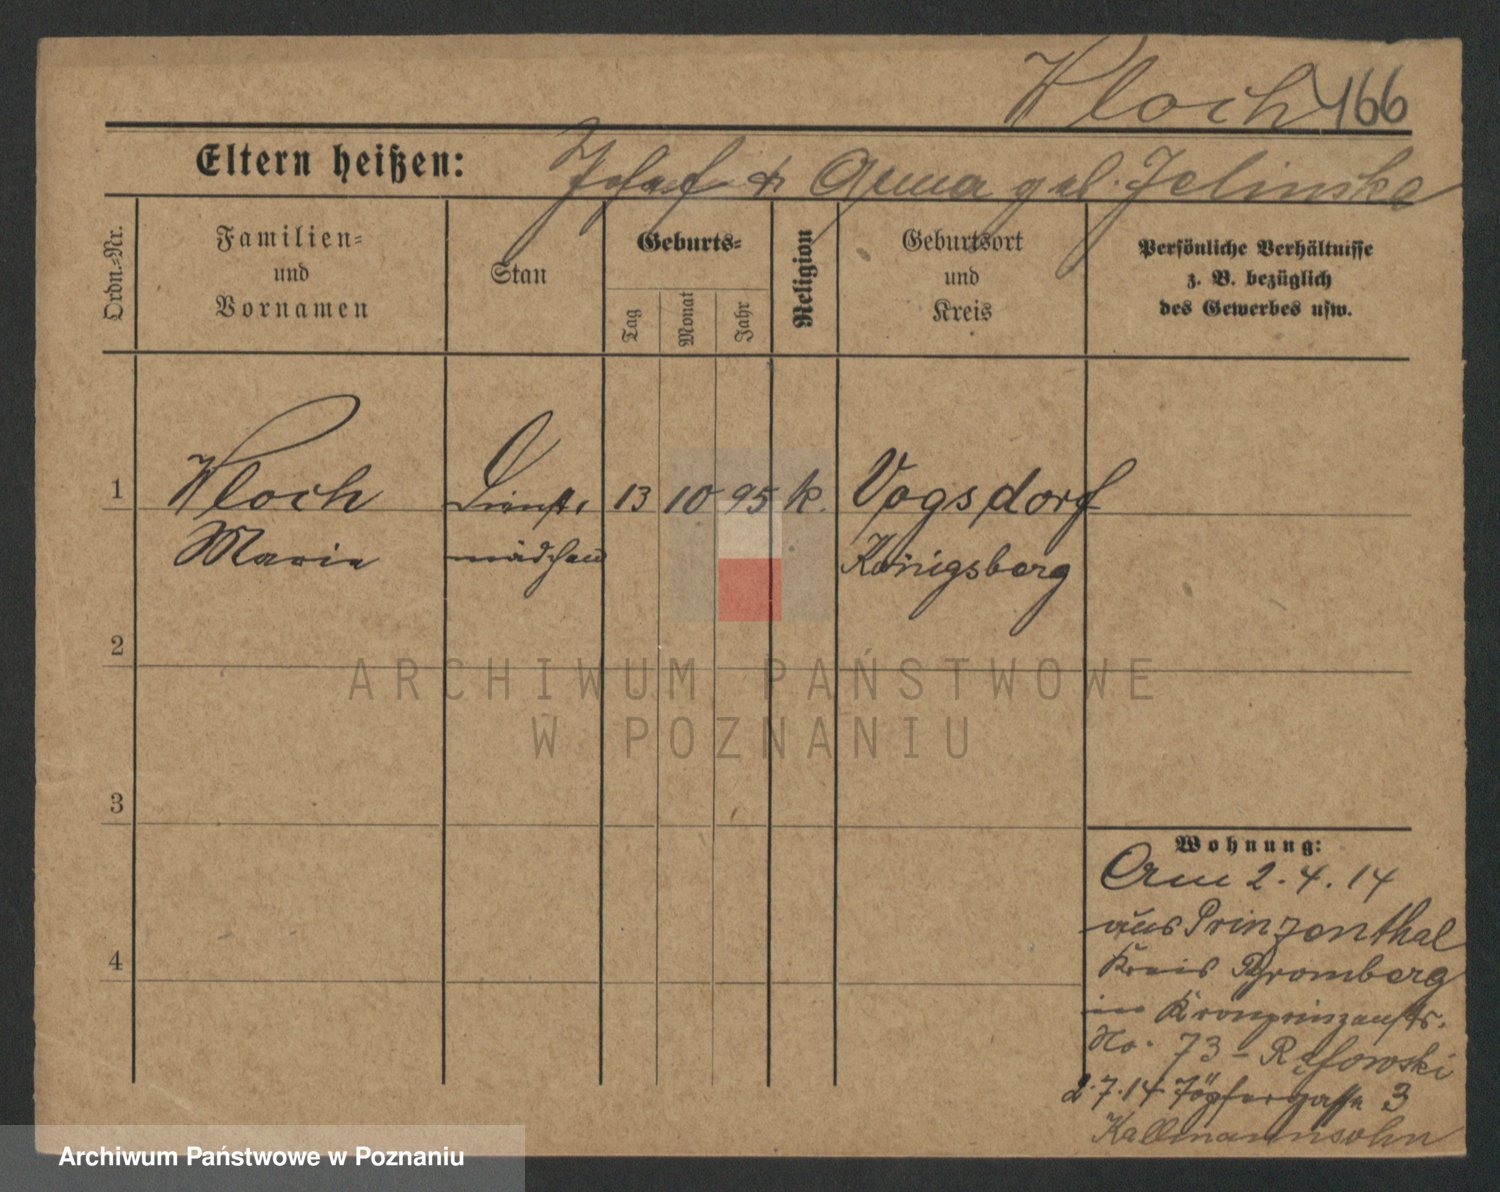 Wloch 166
Eltern heißen: Josef & Anna geb. Jelinska
Ordn.-Nr.
Familien-
und
Vornamen
Stan
Geburts-
Tag
Monat
Jahr
Religion
Geburtsort
und
Kreis
Persönliche Verhältnisse
z. B. bezüglich
des Gewerbes usw.
1 Wloch Dienst- 13 10 95 k. Vogsdorf
Marie mädchen Königsberg
2
3
4
Wohnung:
Am 2.4.14
aus Prinzenthal
Kreis Bromberg
in Kronprinzenstr.
No. 73 -
2.7.14 Töpfergasse 3
Kallmannsohn
ARCHIWUM PAŃSTWOWE
W POZNANIU
Archiwum Państwowe w Poznaniu